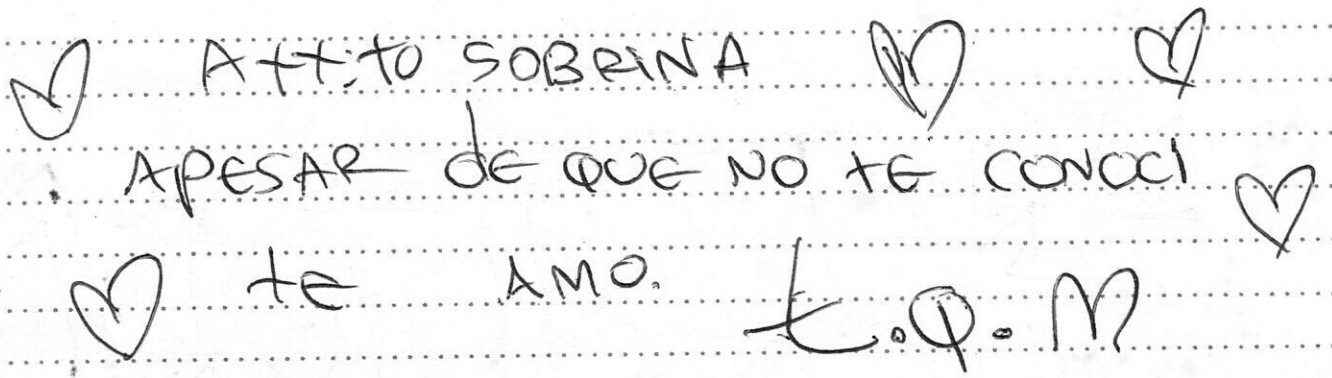 A ++i+o SOBRINA
APESAR dE QUE NO tE CONOCI
te AMO. t.Q.M